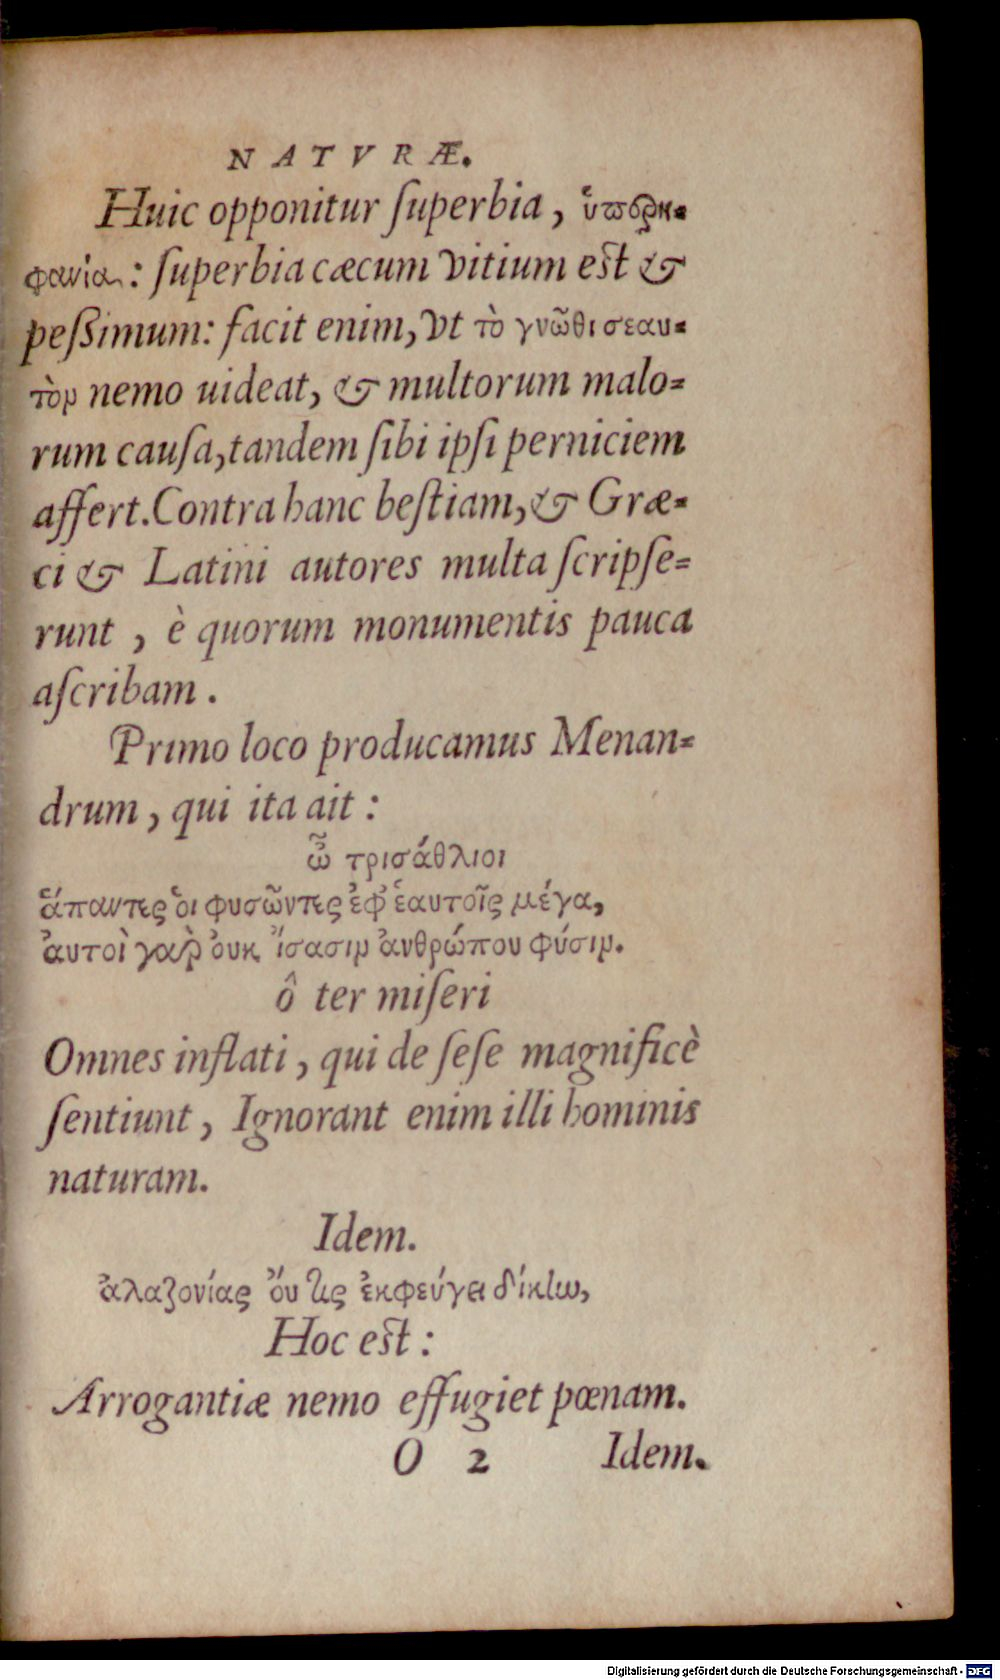 NATVRÆ.
Huic opponitur ſuperbia, ὑπερη-
φανία: ſuperbia cæcum vitium est &
peſsimum: facit enim, vt τὸ γνῶθι σεαυ-
τὸν nemo uideat, & multorum malo-
rum cauſa, tandem ſibi ipſi perniciem
affert. Contra hanc beſtiam, & Græ-
ci & Latini autores multa ſcripſe-
runt, è quorum monumentis pauca
aſcribam.
Primo loco producamus Menan-
drum, qui ita ait:
ὦ τρισάθλιοι
ἅπαντες ὁι φυσῶντες ἐφ' ἑαυτοῖς μέγα,
ἀυτοὶ γὰρ ὀυκ ἴσασιν ἀνθρώπου φύσιν.
ô ter miſeri
Omnes inflati, qui de ſeſe magnificè
ſentiunt, Ignorant enim illi hominis
naturam.
Idem.
ἀλαζονίας ὄυ τις ἐκφεύγει δίκην,
Hoc est:
Arrogantiæ nemo effugiet pœnam.
O 2 Idem.
Digitalisierung gefördert durch die Deutsche Forschungsgemeinschaft - DFG